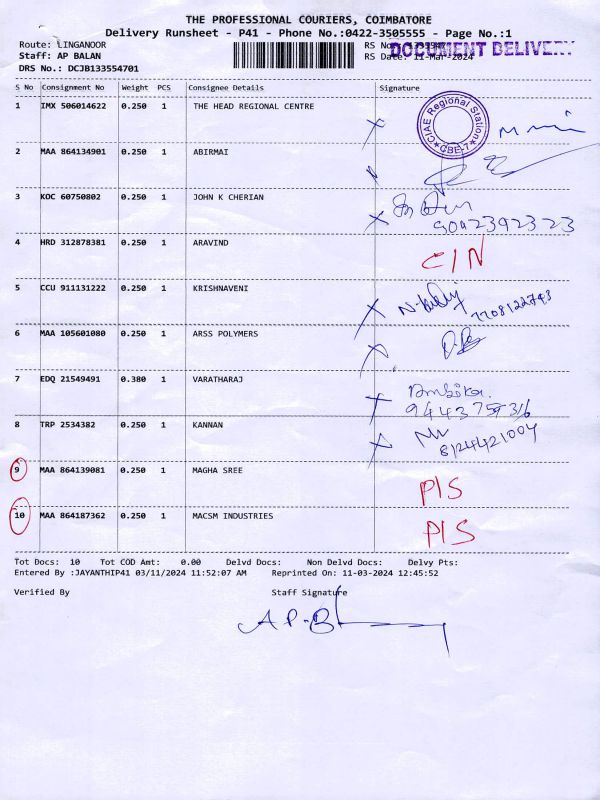 THE PROFESSIONAL COURIERS, COIMBATORE
Delivery Runsheet - P41 - Phone No.:0422-3505555 - Page No.:1
Route: LINGANOOR RS No.:
DOCUMENT DELIVERY
Staff: AP BALAN RS Date: 11-Mar-2024
DRS No.: DCJB133554701
S No Consignment No Weight PCS Consignee Details Signature
1 IMX 506014622 0.250 1 THE HEAD REGIONAL CENTRE
CIAE Regional Station CBE-7
2 MAA 864134901 0.250 1 ABIRMAI
3 KOC 60750802 0.250 1 JOHN K CHERIAN
4 HRD 312878381 0.250 1 ARAVIND C/N
5 CCU 911131222 0.250 1 KRISHNAVENI
7708122743
6 MAA 105601080 0.250 1 ARSS POLYMERS
7 EDQ 21549491 0.380 1 VARATHARAJ Ambika.
8 TRP 2534382 0.250 1 KANNAN
8124421004
9 MAA 864139081 0.250 1 MAGHA SREE P/S
10 MAA 864187362 0.250 1 MACSM INDUSTRIES P/S
Tot Docs: 10 Tot COD Amt: 0.00 Delvd Docs: Non Delvd Docs: Delvy Pts:
Entered By :JAYANTHIP41 03/11/2024 11:52:07 AM Reprinted On: 11-03-2024 12:45:52
Verified By Staff Signature
A P-B